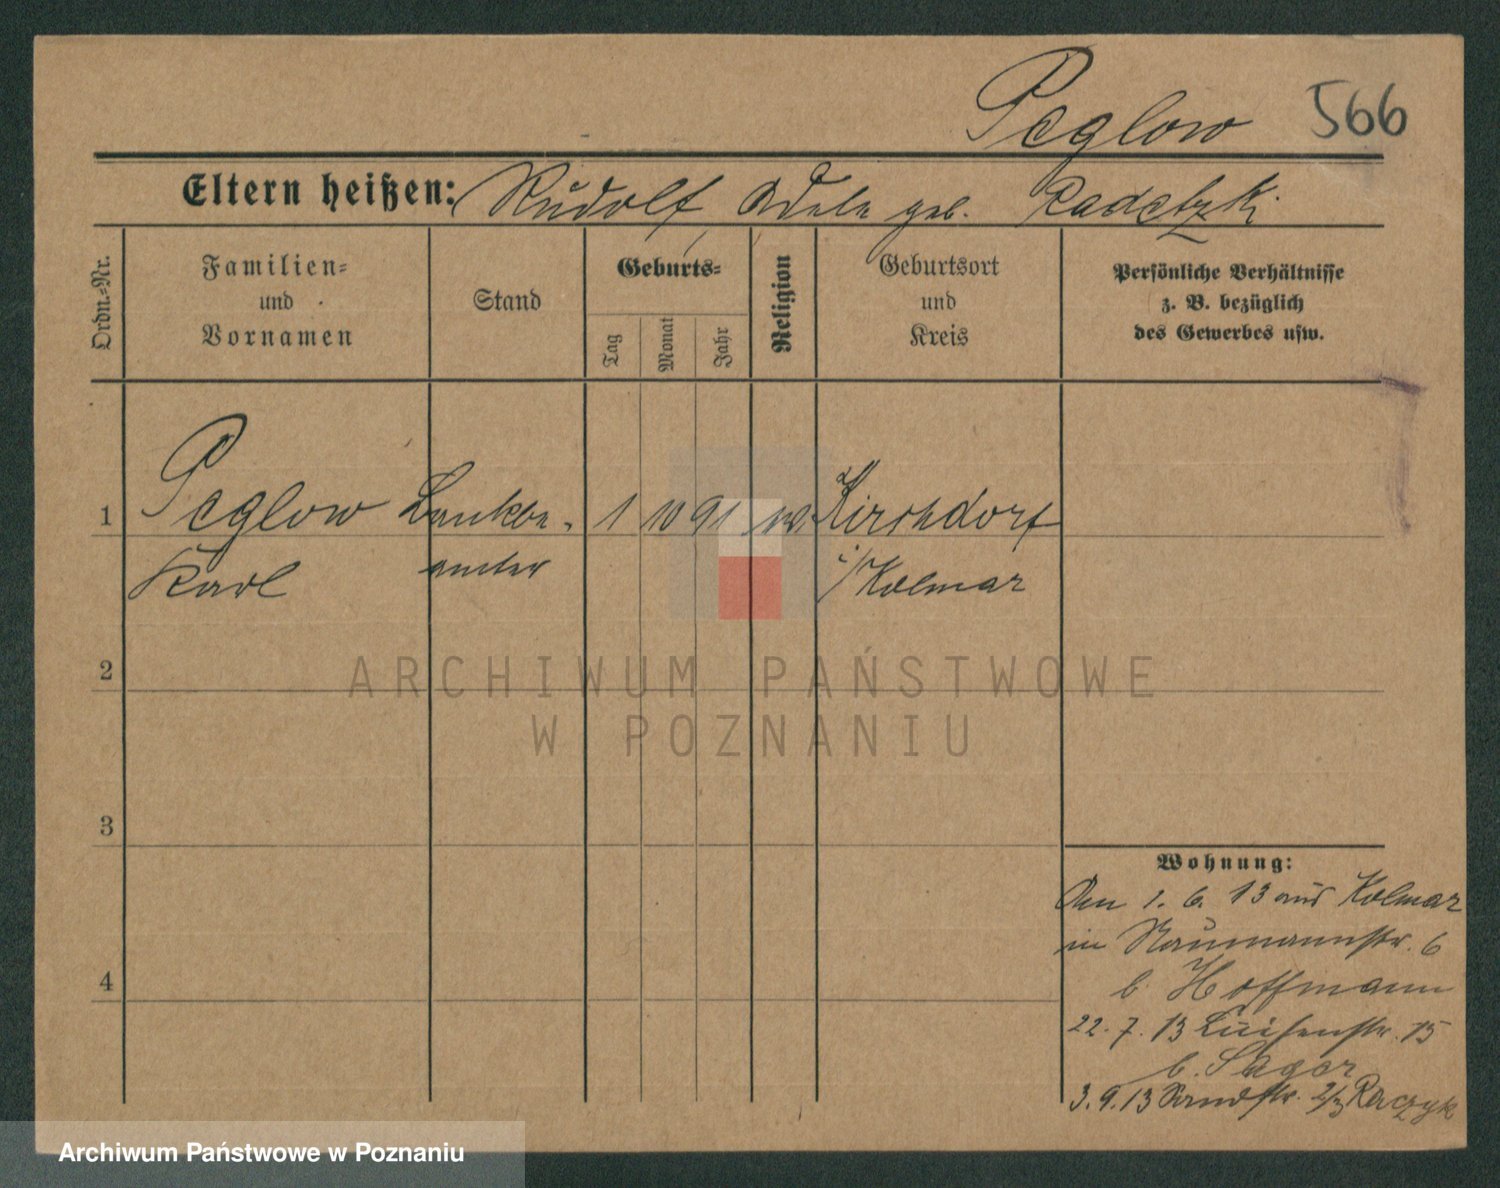 Peglow 566
Eltern heißen: Rudolf Adele geb. Radetzki
Ordn.-Nr.
Familien-
und
Vornamen
Stand
Geburts-
Tag
Monat
Jahr
Religion
Geburtsort
und
Kreis
Persönliche Verhältnisse
z. B. bezüglich
des Gewerbes usw.
1 Peglow Bankbe- 1 10 91 Kirchdorf
Karl amter i/Kolmar
2
ARCHIWUM PAŃSTWOWE
W POZNANIU
3
Wohnung:
Am 1. 6. 13 aus Kolmar
in Naumannstr. 6
4
b. Hoffmann
22. 7. 13 Luisenstr. 15
b. Sagor
3. 9. 13 Sandstr. Raczyk
Archiwum Państwowe w Poznaniu